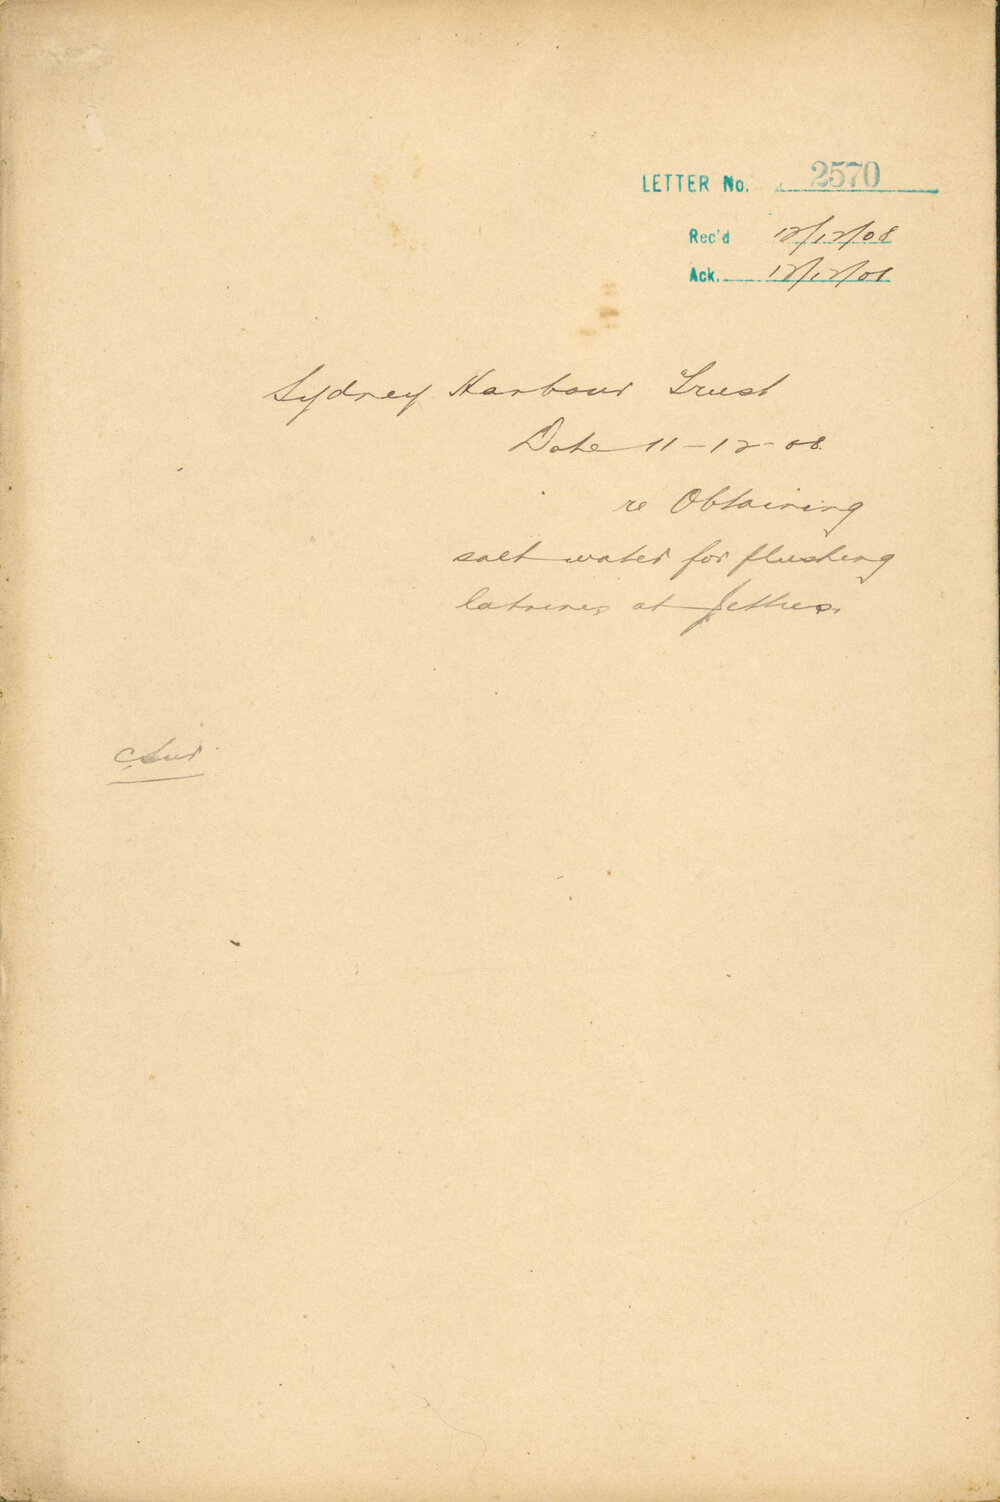 LETTER No. 2570
Rec'd 12/12/08
Ack. 12/12/08
Sydney Harbour Trust
Date 11-12-08
re Obtaining
salt water for flushing
latrines at Jetties.